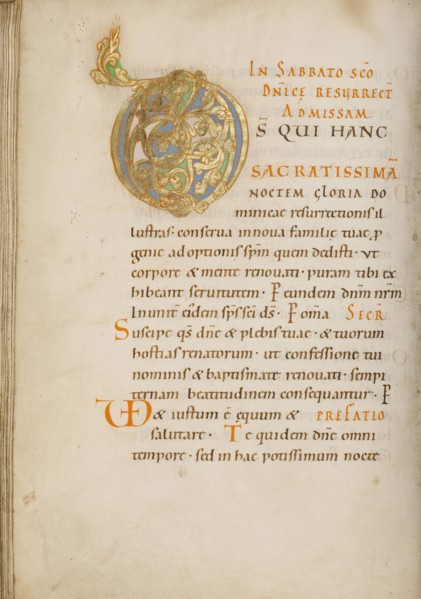 IN SABBATO SC̄O
DN̄ICE RESURRECT
AD MISSAM
DS̄ QUI HANC
SACRATISSIMĀ
NOCTEM GLORIA DO
minicae resurrectionis il
lustras: conserva in nova familiae tuae p̱
genie adoptionis sp̄m quem dedisti · ut
corpore & mente renovati · puram tibi ex
hibeant servitutem · P̱ eundem dn̄m nr̄m
In unit̄ eiusdem sp̄s sc̄i ds̄ · P̱ om̄a SECR̄
Suscipe qs̄ dn̄e & plebis tuae · & tuorum
hostias renatorum · ut confessione tui
nominis & baptismate renovati · sempi
ternam beatitudinem consequantur · P̱
VD & iustum ē equum & PREFATIO
salutare · Te quidem dn̄e omni
tempore · sed in hac potissimum nocte